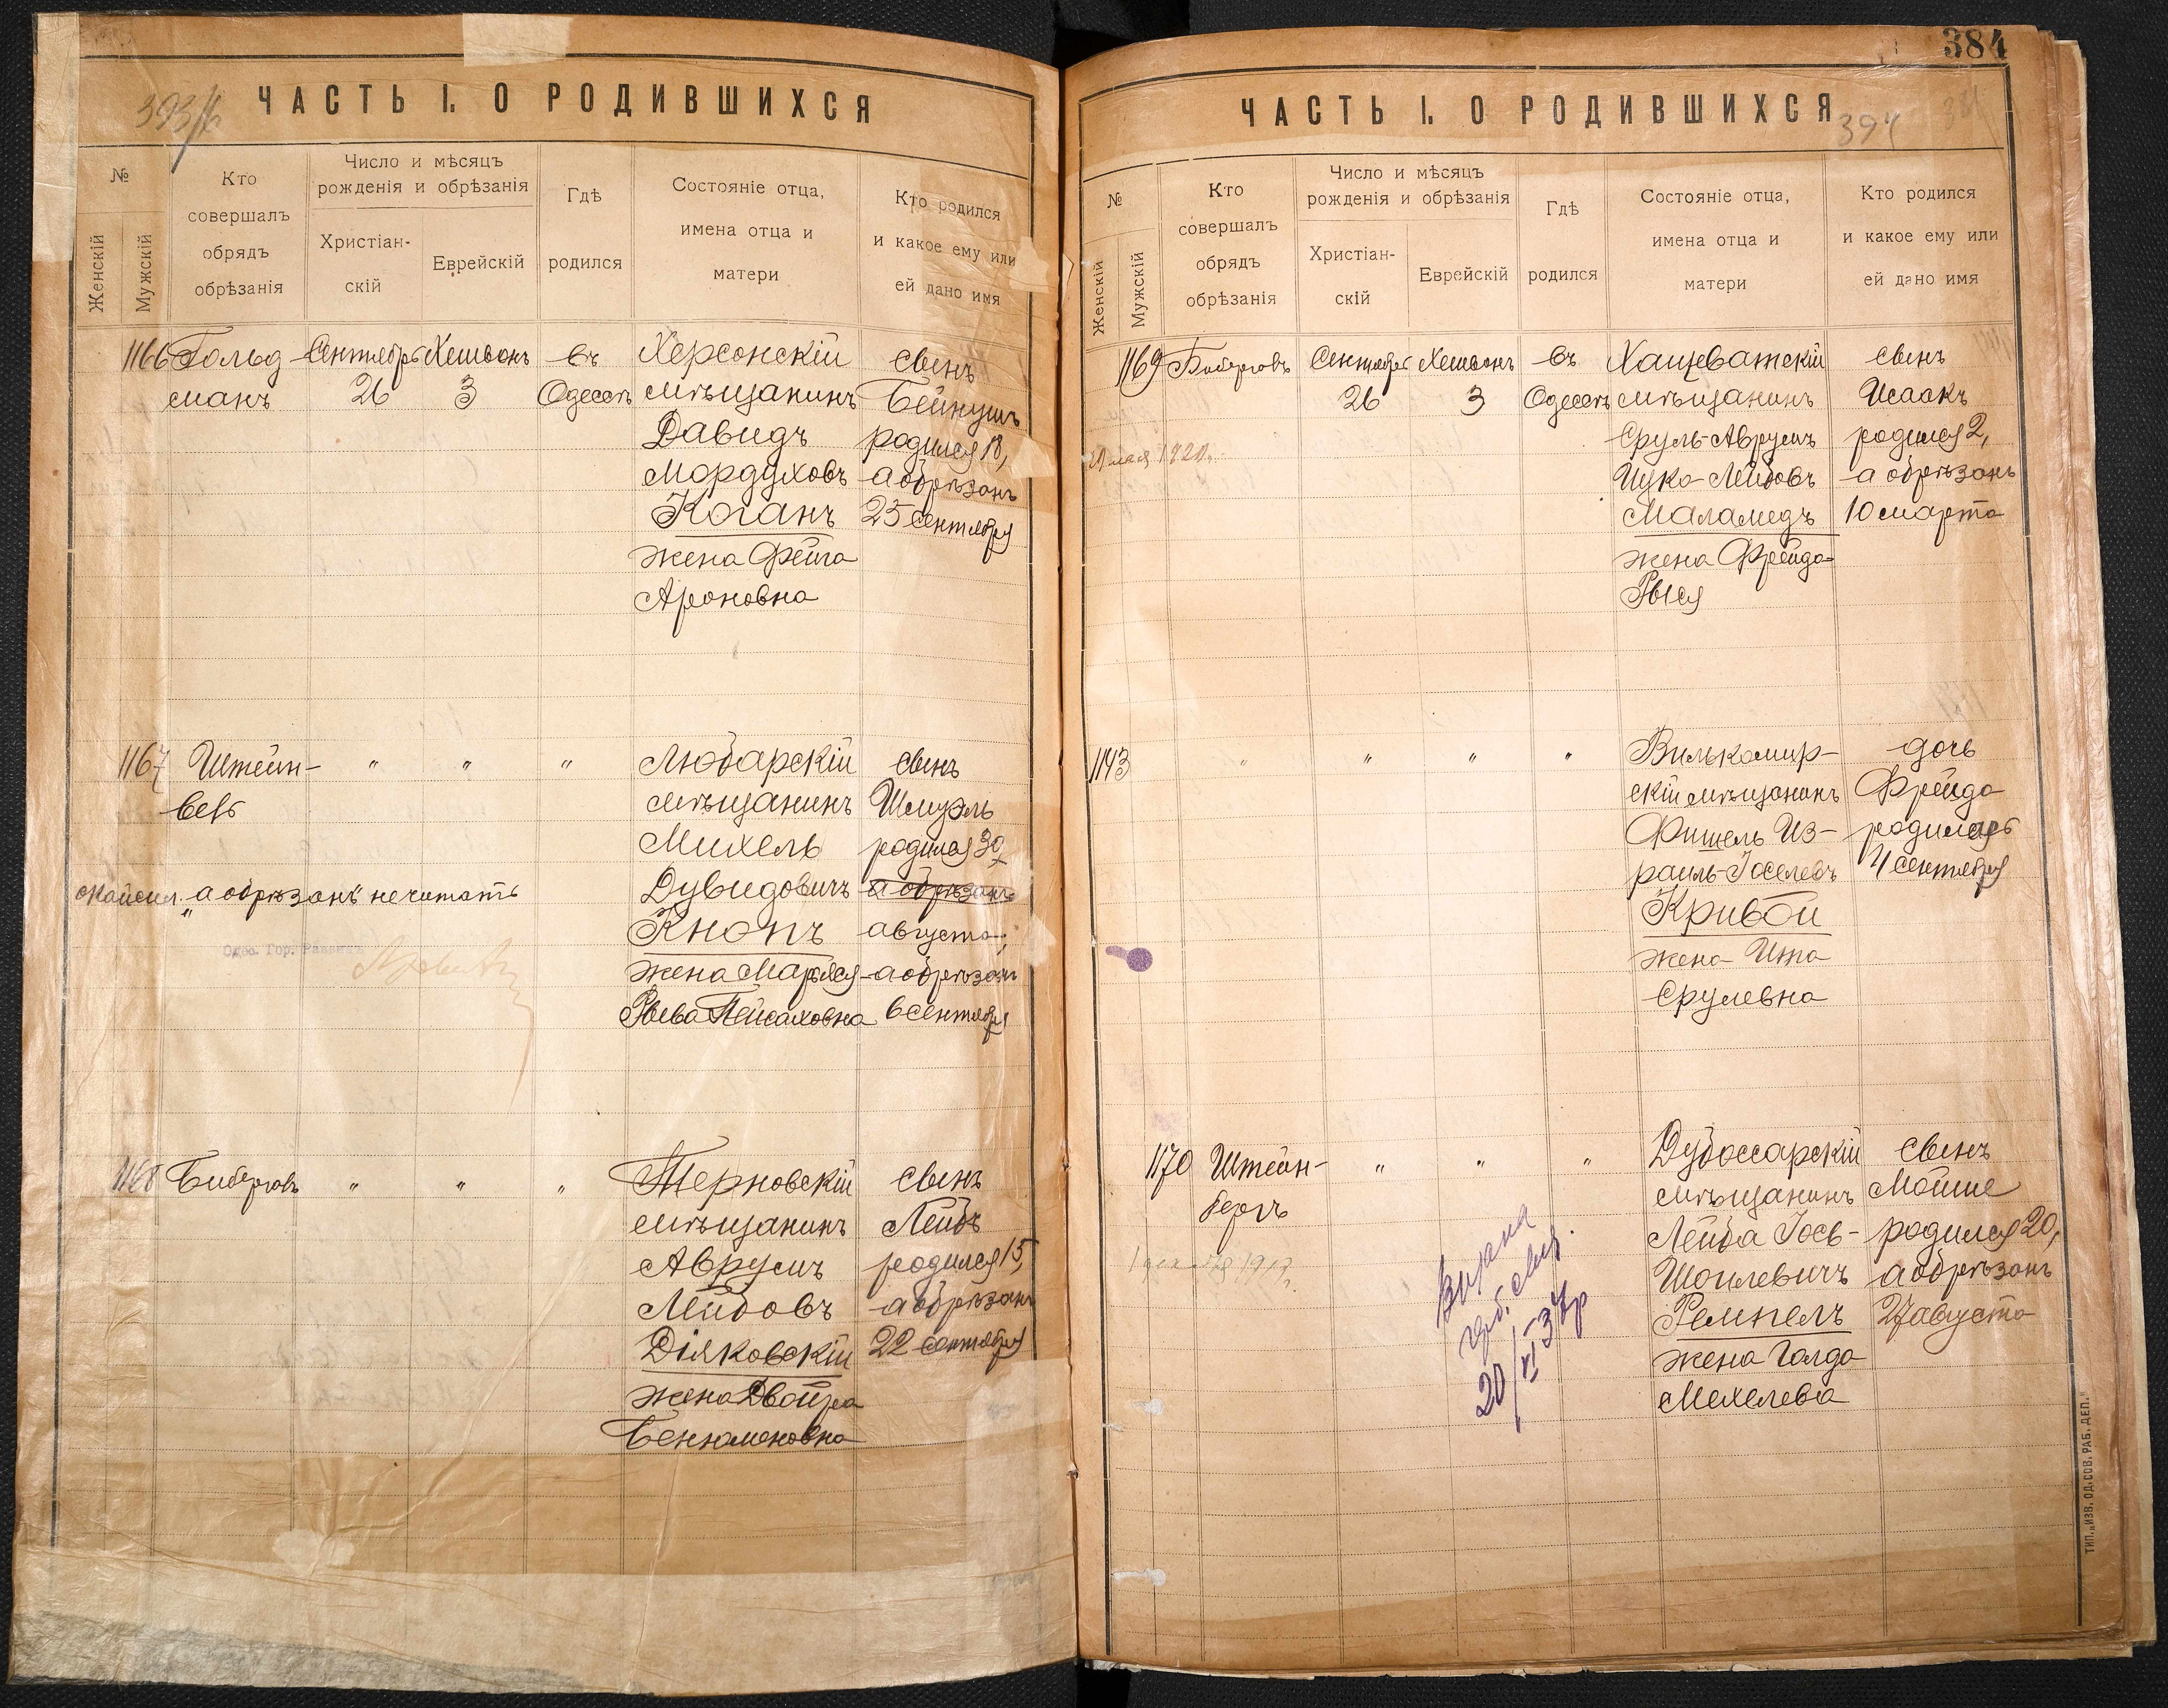 393/б
ЧАСТЬ I. О РОДИВШИХСЯ
№
Женскій
Мужскій
Кто
совершалъ
обрядъ
обрѣзанія
Число и мѣсяцъ
рожденія и обрѣзанія
Христіан-
скій
Еврейскій
Гдѣ
родился
Состояніе отца,
имена отца и
матери
Кто родился
и какое ему или
ей дано имя
1166 Гольд- Сентябрь Хешвонъ въ Херсонскій сынъ
манъ 26 3 Одессѣ мѣщанинъ Бейнушъ
Давидъ родился 18,
Мордуховъ а обрѣзанъ
Коганъ 25 сентября
жена Фейга
Ароновна
1167 Штейн- " " " Любарскій сынъ
мѣщанинъ Шмуэль
Михель родился 30
"а обрѣзанъ" не читать Дувидовичъ а обрѣзанъ
Одес. Гор. Раввинъ
Кнопъ августа,
жена Марьяся- а обрѣзанъ
Рыва Пейсаховна 6 сентября
1168 Биберговъ " " " Терновскій сынъ
мѣщанинъ Лейбъ
Аврумъ родился 15,
Лейбовъ а обрѣзанъ
Діяковскій 22 сентября
жена Двойра
Бенюмоновна
384
ЧАСТЬ I. О РОДИВШИХСЯ
394
№
Женскій
Мужскій
Кто
совершалъ
обрядъ
обрѣзанія
Число и мѣсяцъ
рожденія и обрѣзанія
Христіан-
скій
Еврейскій
Гдѣ
родился
Состояніе отца,
имена отца и
матери
Кто родился
и какое ему или
ей дано имя
1169 Биберговъ Сентябрь Хешвонъ въ Хащеватскій сынъ
26 3 Одессѣ мѣщанинъ Исаакъ
Сруль-Аврумъ родился 2,
Ицко-Лейбовъ а обрѣзанъ
Маламедъ 10 марта
жена Фрейда-
Рыся
1143 " " " " Вилькомир- дочь
скій мѣщанинъ Фрейда
Фишель Из- родилась
раиль-Іоселевъ 4 сентября
Кривой
жена Ита
Срулевна
1170 Штейн- " " " Дубоссарскій сынъ
бергъ мѣщанинъ Мойше
Лейба Іось- родился 20,
Шоилевичъ а обрѣзанъ
Ремпель 27 августа
жена Голда
Мехелева
20/XI-34р
ТИП. „ИЗВ. ОД. СОВ. РАБ. ДЕП."